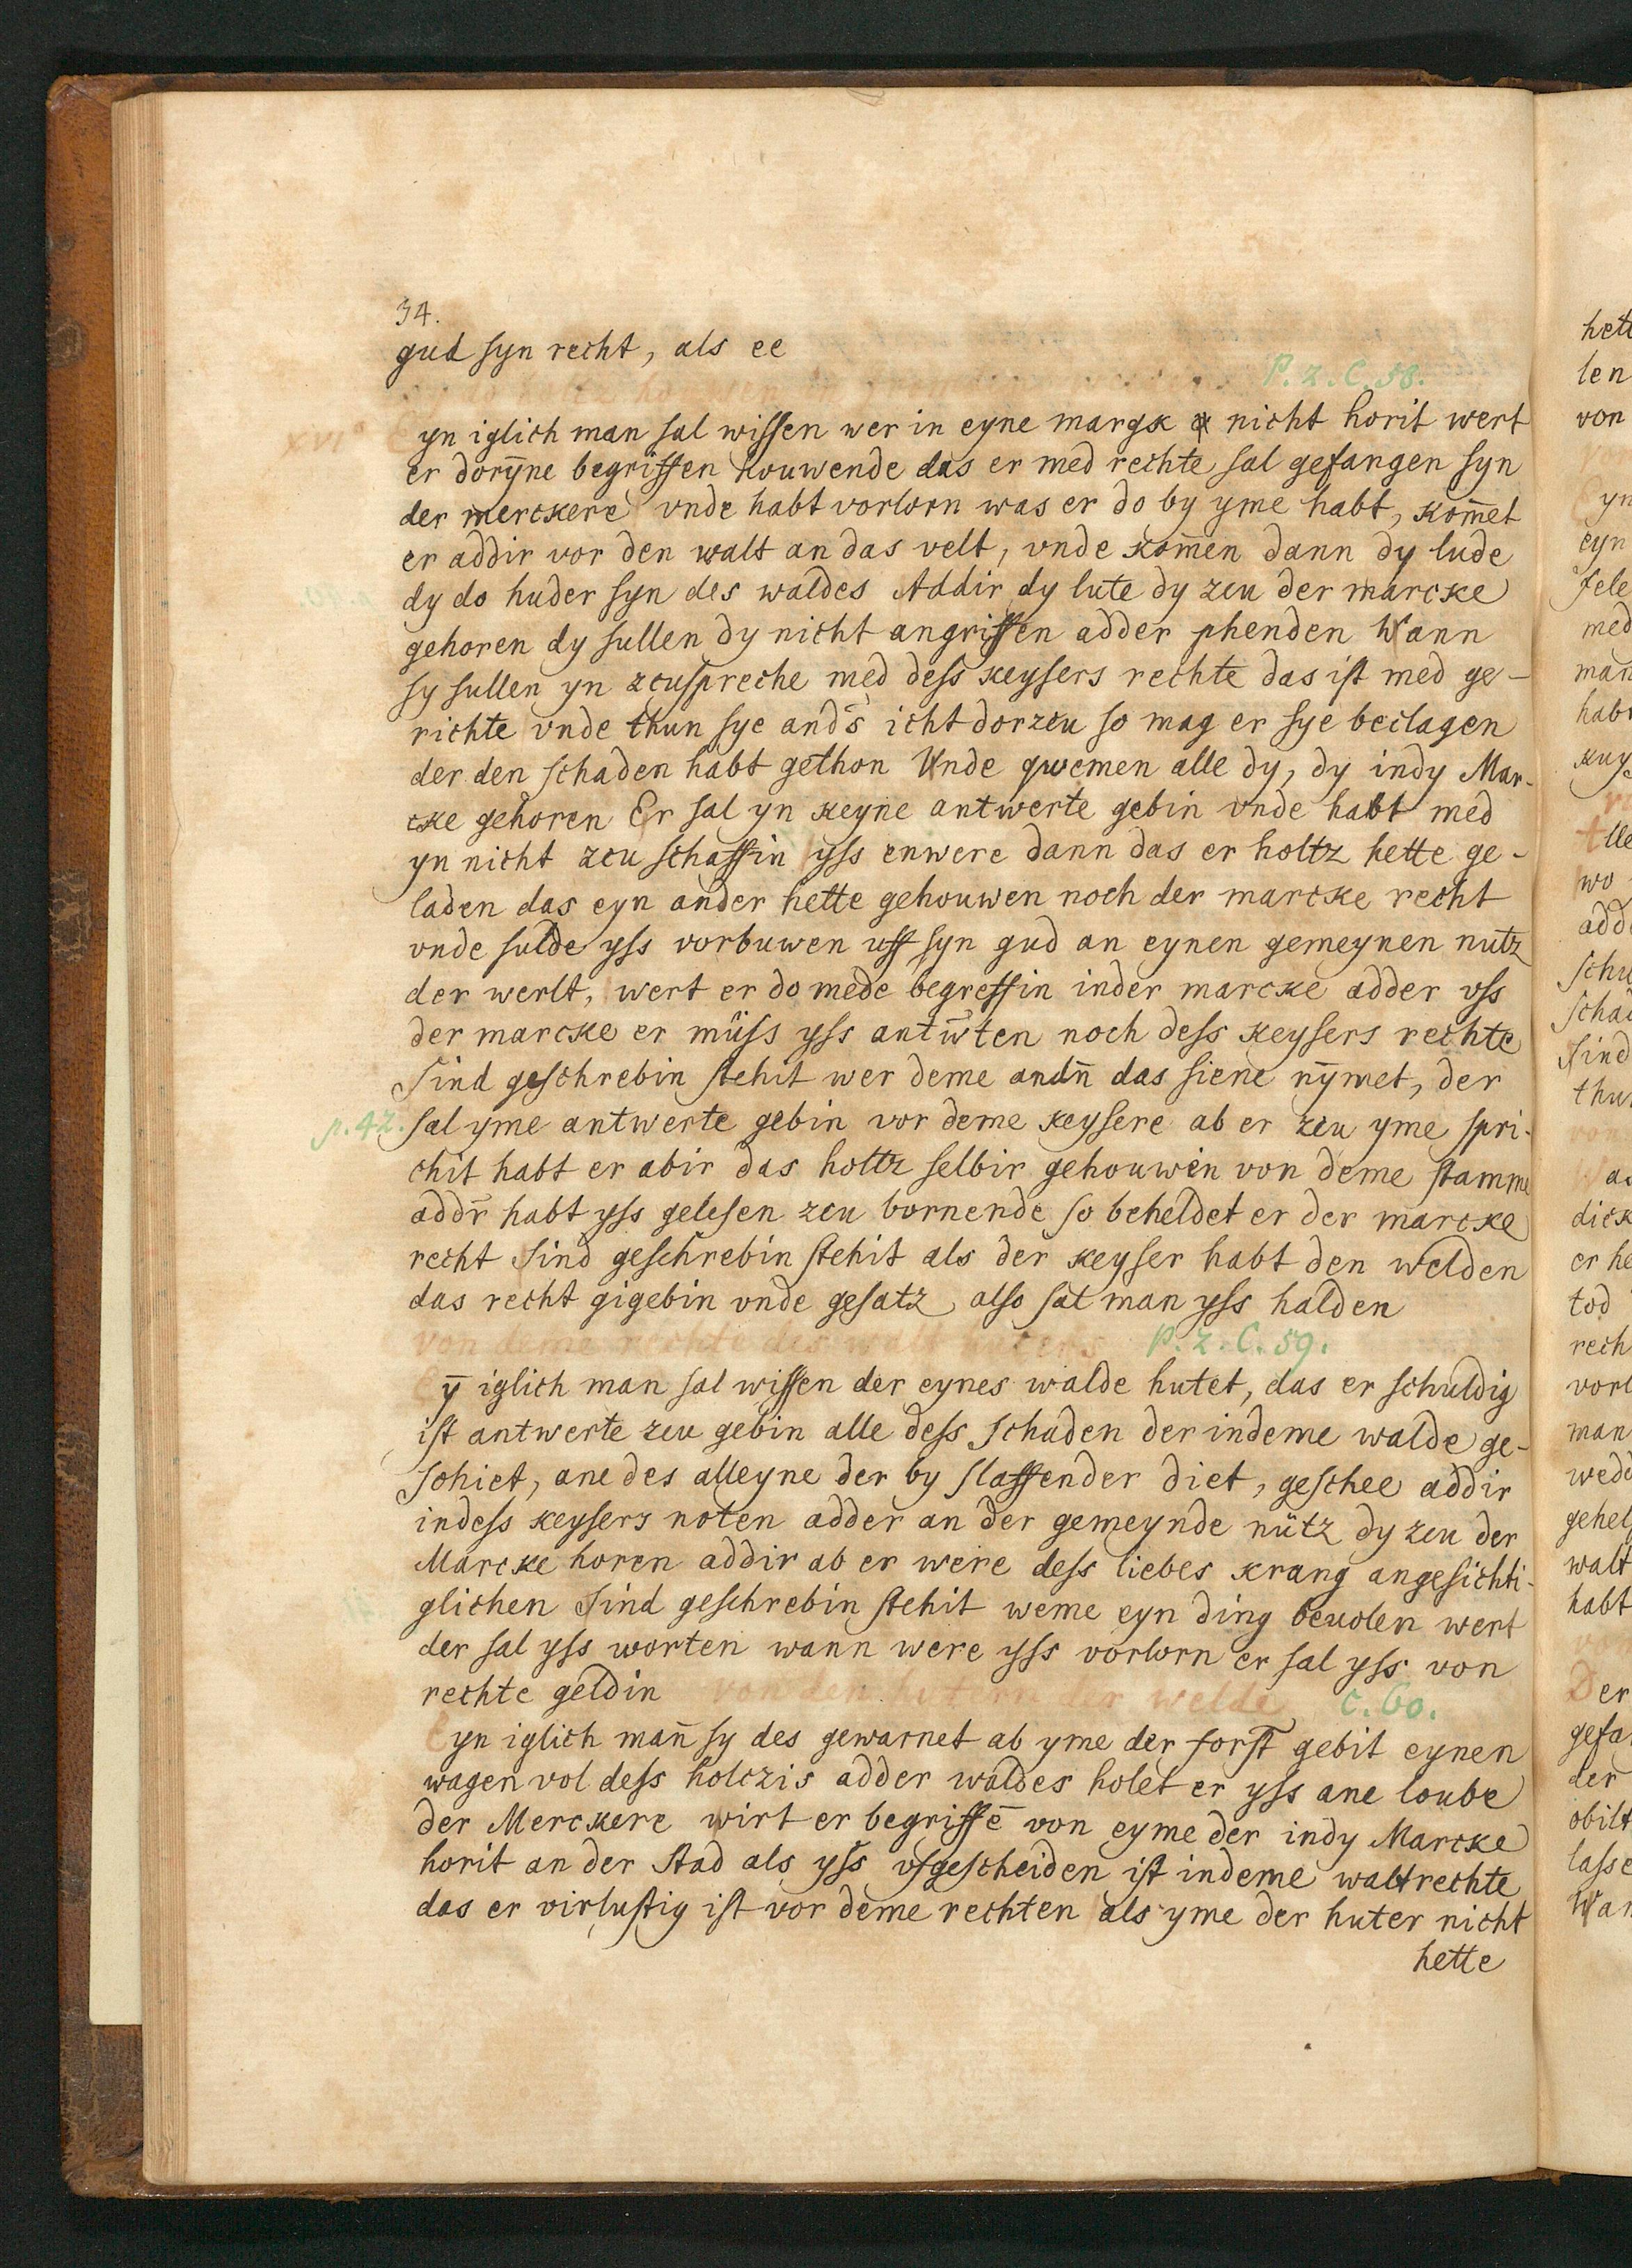 34.
gud syn recht, als ee
P. 2. C. 58.
XVI° Eyn iglich man sal wissen wer in eyne margk nicht horit wert
er dorȳne begriffen houwende das er med rechte sal gefangen syn
der merckere vnde habt vorlorn was er do by yme habt, kom̄et
er addir vor den walt an das velt, vnde kom̄en dann dy lude
dy do huder syn des waldes Addir dy lute dy zcu der marcke
gehoren dy sullen dy nicht angriffen adder phenden Wann
sy sullen yn zcuspreche med dess keysers rechte das ist med ge-
richte vnde thun sye and̄s icht dorzcu so mag er sye beclagen
der den schaden habt gethon Vnde qwemen alle dy, dy indy Mar-
cke gehoren Er sal yn keyne antwerte gebin vnde habt med
yn nicht zcu schaffin yss enwere dann das er holtz hette ge-
laden das eyn ander hette gehouwen noch der marcke recht
vnde sulde yss vorbuwen uff syn gud an eynen gemeynen nutz
der werlt, wert er do mede begreffin inder marcke adder vss
der marcke er müss yss antw̄ten noch dess keysers rechte
Sind geschrebin stehit wer deme andn̄ das siene nȳmet, der
p. 42. sal yme antwerte gebin vor deme keysere ab er zcu yme spri-
chit habt er abir das holtz selbir gehouwin von deme stamme
addr̄ habt yss gelesen zcu bornende so beheldet er der marcke
recht Sind geschrebin stehit als der keyser habt den welden
das recht gigebin vnde gesatz also sat man yss halden
von deme rechte des walt huters P. 2. C. 59.
Eȳ iglich man sal wissen der eynes walde hutet, das er schuldig
ist antwerte zcu gebin alle dess schaden der indeme walde ge-
schiet, ane des alleyne der by slaffender diet, geschee addir
indess keysers noten adder an der gemeynde nütz dy zcu der
Marcke horen addir ab er were dess liebes krang angesichti-
glichen Sind geschrebin stehit weme eyn ding beuolen wert
der sal yss worten wann were yss vorlorn er sal yss von
rechte geldin von den hutern der welde C. 60.
Eyn iglich man̄ sy des gewarnet ab yme der forst gebit eynen
wagen vol dess holczis adder waldes holet er yss ane loube
der Merckere wirt er begriffē von eyme der indy Marcke
horit an der stad als yss vsgescheiden ist indeme waltrechte
das er virlustig ist vor deme rechten als yme der huter nicht
hette